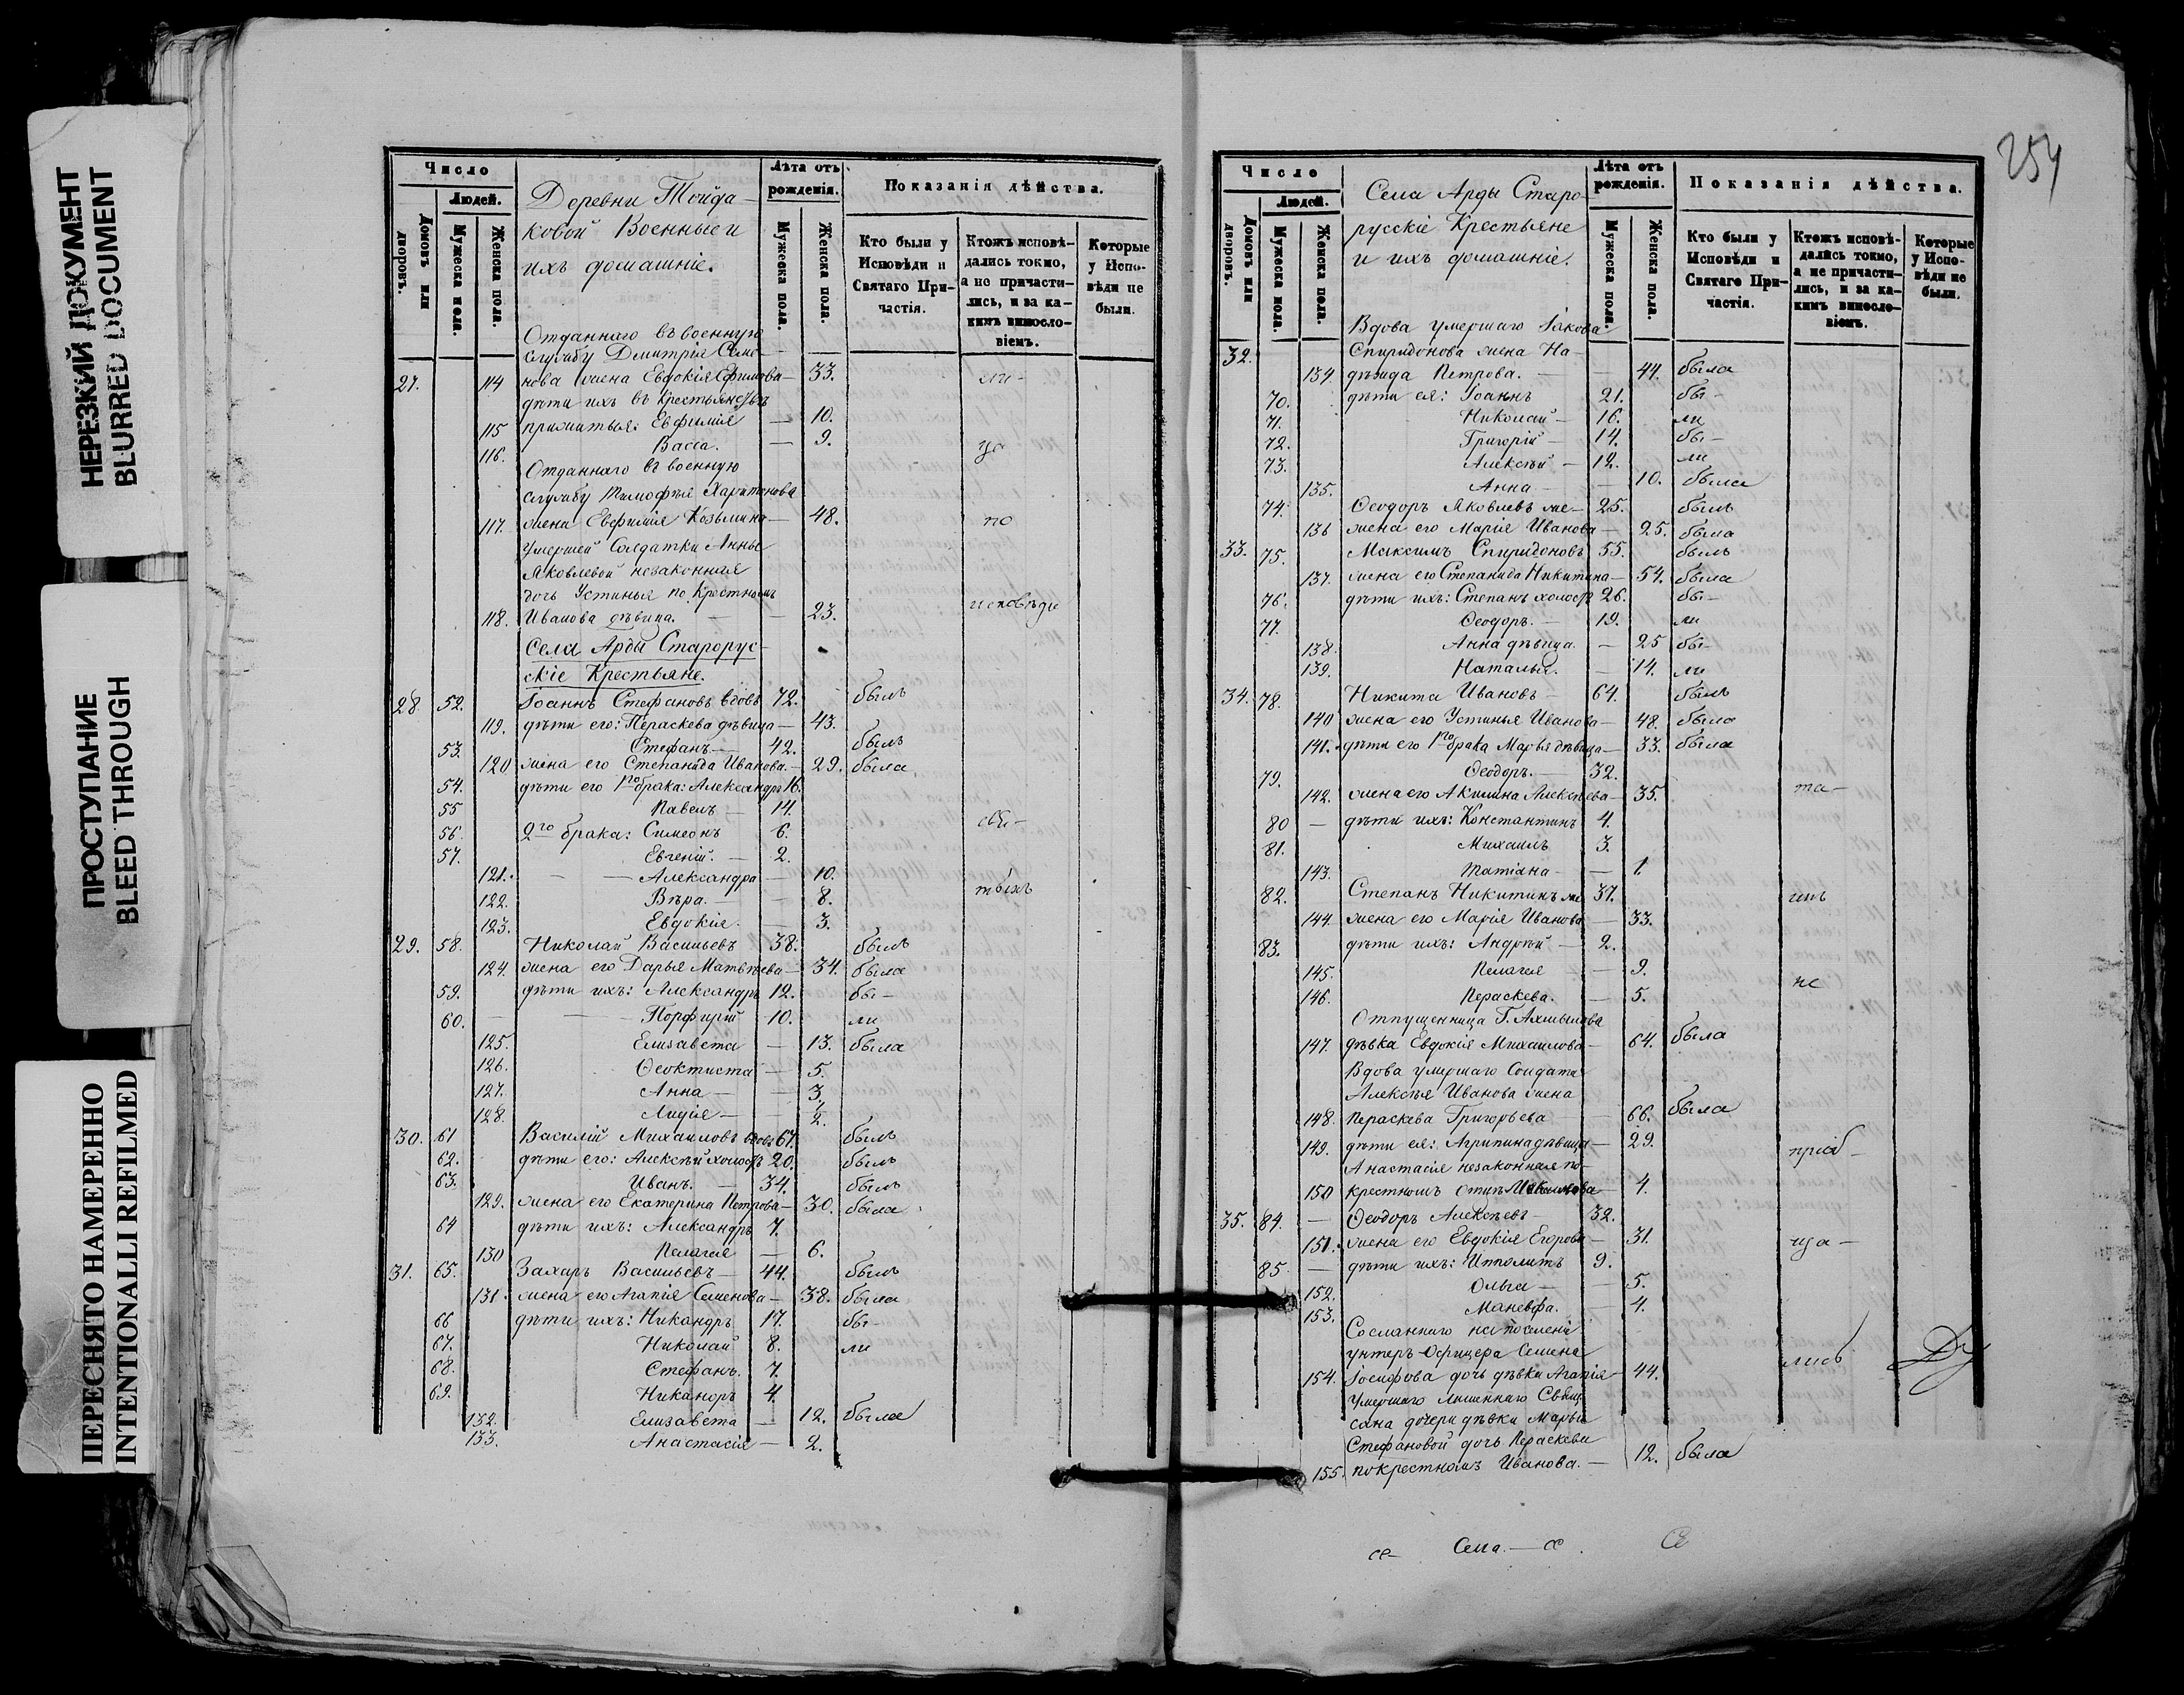 НЕРЕЗКИЙ ДОКУМЕНТ
BLURRED DOCUMENT
ПРОСТУПАНИЕ
BLEED THROUGH
ПЕРЕСНЯТО НАМЕРЕННО
INTENTIONALLI REFILMED
Число
Людей.
Домовъ или дворовъ.
Мужеска пола.
Женска пола.
Деревни Тойда-
ковой Военные и
ихъ домашніе.
Лѣта отъ рожденія.
Мужеска пола.
Женска пола.
Показанія дѣйства.
Кто были у Исповѣди и Святаго Причастія.
Ктожъ исповѣ-
дались токмо,
а не причасти-
лись, и за ка-
кимъ виносло-
віемъ.
Которые
у Испо-
вѣди не
были.
Отданнаго въ военную
службу Димитрія Семе-
27. 114 нова жена Евдокія Ефимова 33. ли-
дѣти ихъ въ крестьянствѣ
115 прижитыя: Евфимія — 10.
116. Васса. — 9. ца
Отданнаго въ военную
службу Тимофея Харитонова
117. жена Евфимія Козьмина — 48. по
Умершей Солдатки Анны
Яковлевой незаконная
дочь Устинья по крестномъ
118. Иванова дѣвица. — 23. исповѣди
Села Арды Старорус-
скіе Крестьяне.
28. 52. Іоаннъ Стефановъ вдовъ 72. былъ
119. дѣти его: Пераскева дѣвица — 43.
53. Стефанъ — 42. былъ
120 жена его Степанида Иванова. — 29. была
54. дѣти его 1го брака: Александръ 16.
55 Павелъ — 14.
56. 2го брака: Симеонъ 6.
57. Евгеній. — 2.
121. — — Александра — 10.
122. Вѣра. — 8.
123. Евдокія. 3.
29. 58. Николай Васильевъ 38. былъ
124. жена его Дарья Матвѣева — 34. была
59. дѣти ихъ: Александръ 12. бы-
60. — Порфирій 10. ли
125. Елизавета — 13. была
126. Ѳеоктиста — 5.
127. Анна — 3
128. Лидія —
30. 61 Василій Михаиловъ вдовъ 67. былъ
62. дѣти его: Алексѣй холостъ 20. былъ
63. Иванъ. — 34. былъ
129. жена его Екатерина Петрова — 30. была
64 дѣти ихъ: Александръ 7.
130 Пелагея — 6.
31. 65. Захаръ Васильевъ — 44. былъ
131. жена его Агапія Семенова — 38. была
66 дѣти ихъ: Никандръ 17. бы-
67. Николай 8. ли
68. Стефанъ. 7.
69. Никаноръ 4.
132. Елизавета — 12. была
133. Анастасія — 2.
254
Число
Людей.
Домовъ или дворовъ.
Мужеска пола.
Женска пола.
Села Арды Старо-
русскіе Крестьяне
и ихъ домашніе.
Лѣта отъ рожденія.
Мужеска пола.
Женска пола.
Показанія дѣйства.
Кто были у Исповѣди и Святаго Причастія.
Ктожъ исповѣ-
дались токмо,
а не причасти-
лись, и за ка-
кимъ винесло-
віемъ.
Которые
у Испо-
вѣди не
были.
Вдова умершаго Іакова
32. Спиридонова жена На-
134. дѣжда Петрова. — 44. была
70. дѣти ея: Іоаннъ 21. бы-
71. Николай — 16. ли
72. Григорій — 14. бы-
73. Алексѣй — 12. ли
135. Анна — 10. была
74. Ѳеодоръ Яковлевъ же- 25. былъ
136 жена его Марія Иванова — 25. была
33. 75. Максимъ Спиридоновъ 55. былъ
137. жена его Степанида Никитина — 54. была
76. дѣти ихъ: Степанъ холостъ 26. бы-
77. Ѳеодоръ. — 19. ли
138. Анна дѣвица. — 25 бы-
139. Наталья. — 14. ли
34. 78. Никита Ивановъ — 64. былъ
140 жена его Устинья Иванова — 48. была
141. дѣти его 1го брака Марья дѣвица — 33. была
79. Ѳеодоръ. — 32.
142. жена его Акилина Алексѣева — 35. та-
80 — дѣти ихъ: Константинъ 4.
81. Михаилъ 3.
143. Татіана — 1.
82. Степанъ Никитинъ же 37.
144. жена его Марія Иванова — 33.
83. дѣти ихъ: Андрей — 2.
145. Пелагея — 9.
146. Пераскева. — 5. не
Отпущенница Г.
147. дѣвка Евдокія Михаилова — 64. была
Вдова умершаго Солдата
Алексѣя Иванова жена
148. Пераскева Григорьева 66. была
149. дѣти ея: Агрипина дѣвица — 29. пріоб-
Анастасія незаконная по-
150 крестномъ отцѣ — 4.
35. 84. — Ѳеодоръ Алексѣевъ — 32.
151. жена его Евдокія Егорова — 31. ща-
85. — дѣти ихъ: Ипполитъ 9.
152. Ольга — 5.
153. Маневфа. — 4.
Сосланнаго на поселеніе
унтеръ-Офицера Семена
154. Іосифова дочь дѣвка Агапія — 44. лись
Умершаго лишеннаго Свящ.
сана дочери дѣвки Марьи
Стефановой дочь Пераскева
155. по крестномъ Иванова. — 12. была